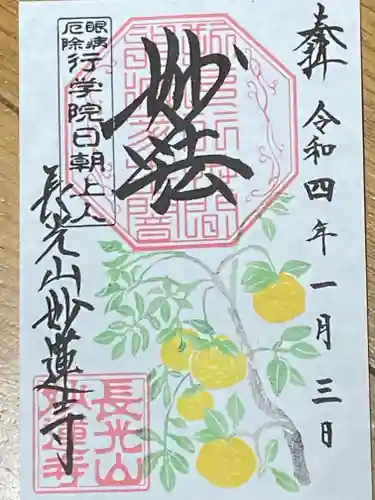 奉拝
令和四年一月三日
妙法
眼病
厄除
行学院日朝上人
長光山妙蓮寺
長光山
妙蓮寺